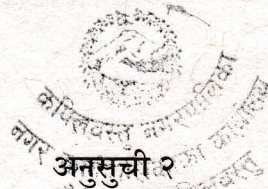 कपिलवस्तु नगरपालिका
नगर कार्यपालिकाको कार्यालय
अनुसुची २